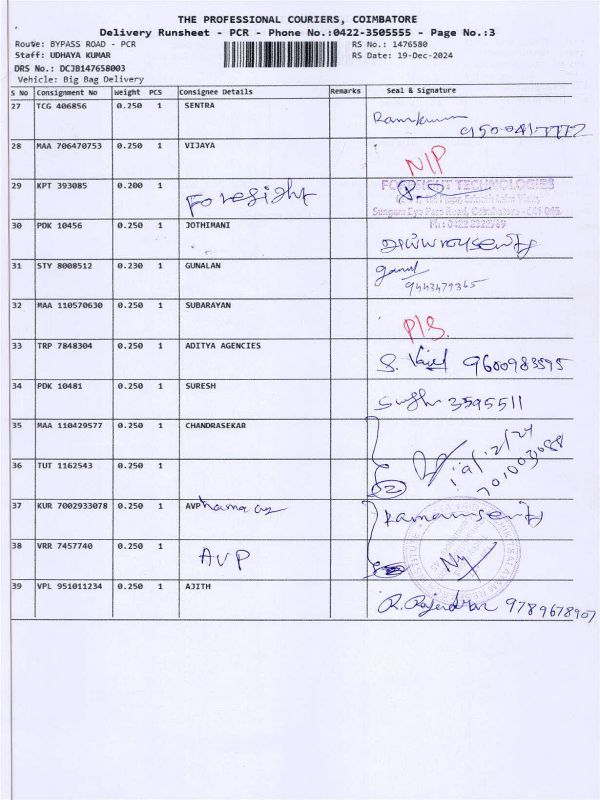 THE PROFESSIONAL COURIERS, COIMBATORE
Delivery Runsheet - PCR - Phone No.:0422-3505555 - Page No.:3
Route: BYPASS ROAD - PCR
RS No.: 1476580
Staff: UDHAYA KUMAR
RS Date: 19-Dec-2024
DRS No.: DCJB147658003
Vehicle: Big Bag Delivery
S No Consignment No Weight PCS Consignee Details Remarks Seal & Signature
27 TCG 406856 0.250 1 SENTRA
Ramkumar
28 MAA 706470753 0.250 1 VIJAYA
N/P
29 KPT 393085 0.200 1 Foresight FORESIGHT TECHNOLOGIES
30 PDK 10456 0.250 1 JOTHIMANI
31 STY 8008512 0.230 1 GUNALAN
9443479365
32 MAA 110570630 0.250 1 SUBARAYAN
P/S.
33 TRP 7848304 0.250 1 ADITYA AGENCIES
9600983595
34 PDK 10481 0.250 1 SURESH
3595511
35 MAA 110429577 0.250 1 CHANDRASEKAR
36 TUT 1162543 0.250 1
37 KUR 7002933078 0.250 1 AVP
38 VRR 7457740 0.250 1 AVP
39 VPL 951011234 0.250 1 AJITH
R. Rajendran 9789678907